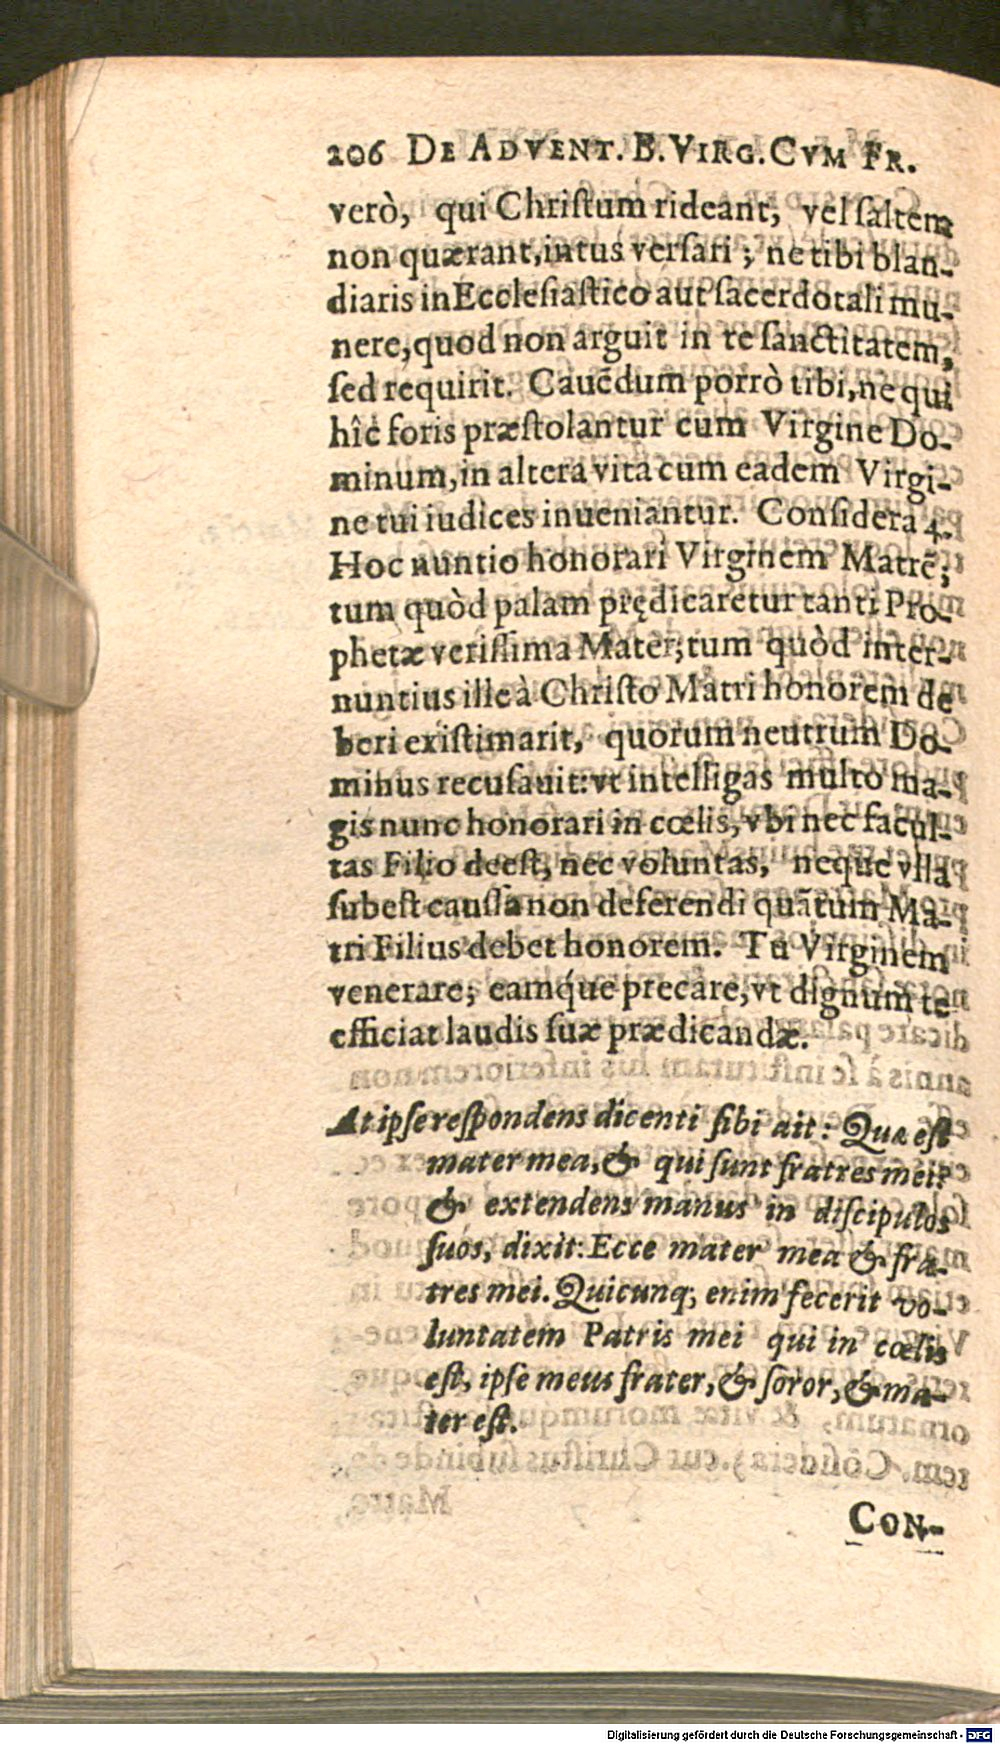 206 DE ADVENT. B. VIRG. CVM FR.
verò, qui Chriſtum rideant, vel ſaltem
non quærant, intus verſari; ne tibi blan-
diaris in Eccleſiaſtico aut ſacerdotali mu-
nere, quod non arguit in te ſanctitatem,
ſed requirit. Cauēdum porrò tibi, ne qui
hîc foris præſtolantur cum Virgine Do-
minum, in altera vita cum eadem Virgi-
ne tui iudices inueniantur. Conſidera 4.
Hoc nuntio honorari Virginem Matrē;
tum quòd palam prędicaretur tanti Pro-
phetæ veriſſima Mater; tum quòd inter-
nuntius ille à Chriſto Matri honorem de
beri exiſtimarit, quorum neutrum Do-
minus recuſauit: vt intelligas multo ma-
gis nunc honorari in cœlis, vbi nec facul-
tas Filio deeſt, nec voluntas, neque vlla
ſubeſt cauſſa non deferendi quātum Ma-
tri Filius debet honorem. Tu Virginem
venerare; eamq́ue precare, vt dignum te
efficiat laudis ſuæ prædicandæ.
At ipſe reſpondens dicenti ſibi ait: Quæ eſt
mater mea, & qui ſunt fratres mei?
& extendens manus in diſcipulos
ſuos, dixit: Ecce mater mea & fra-
tres mei. Quicunq; enim fecerit vo-
luntatem Patris mei qui in cœlis
eſt, ipſe meus frater, & ſoror, & ma-
ter eſt.
CON-
Digitalisierung gefördert durch die Deutsche Forschungsgemeinschaft - DFG